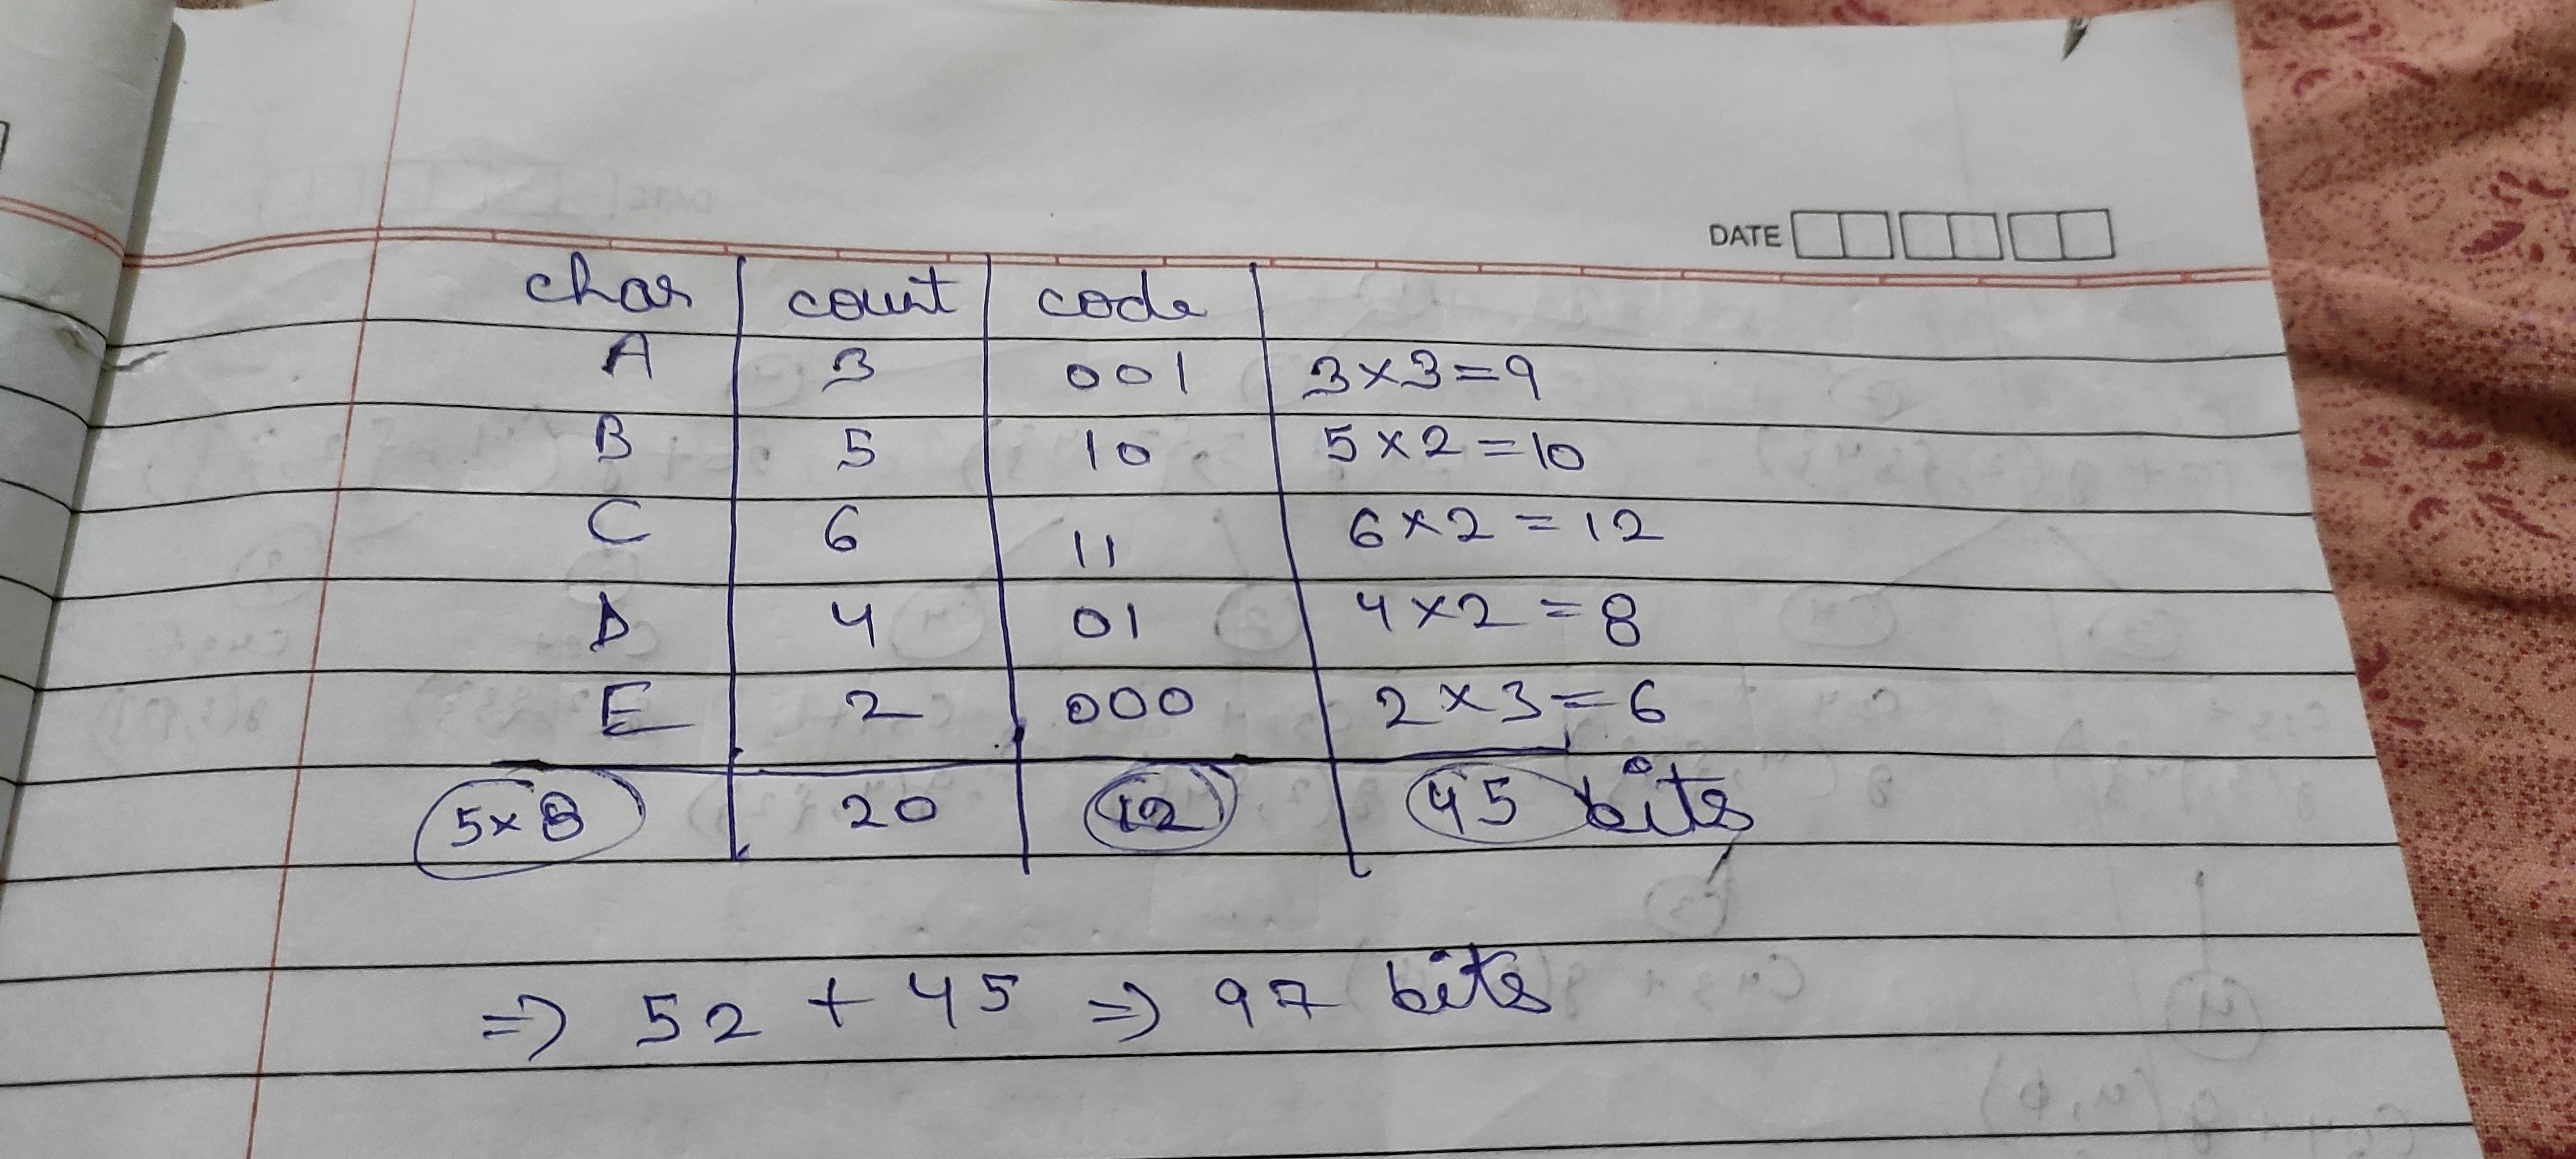 DATE
char count code
A 3 001 3×3=9
B 5 10 5×2=10
C 6 11 6×2=12
D 4 01 4×2=8
E 2 000 2×3=6
5×8 20 12 45 bits
⇒ 52 + 45 ⇒ 97 bits